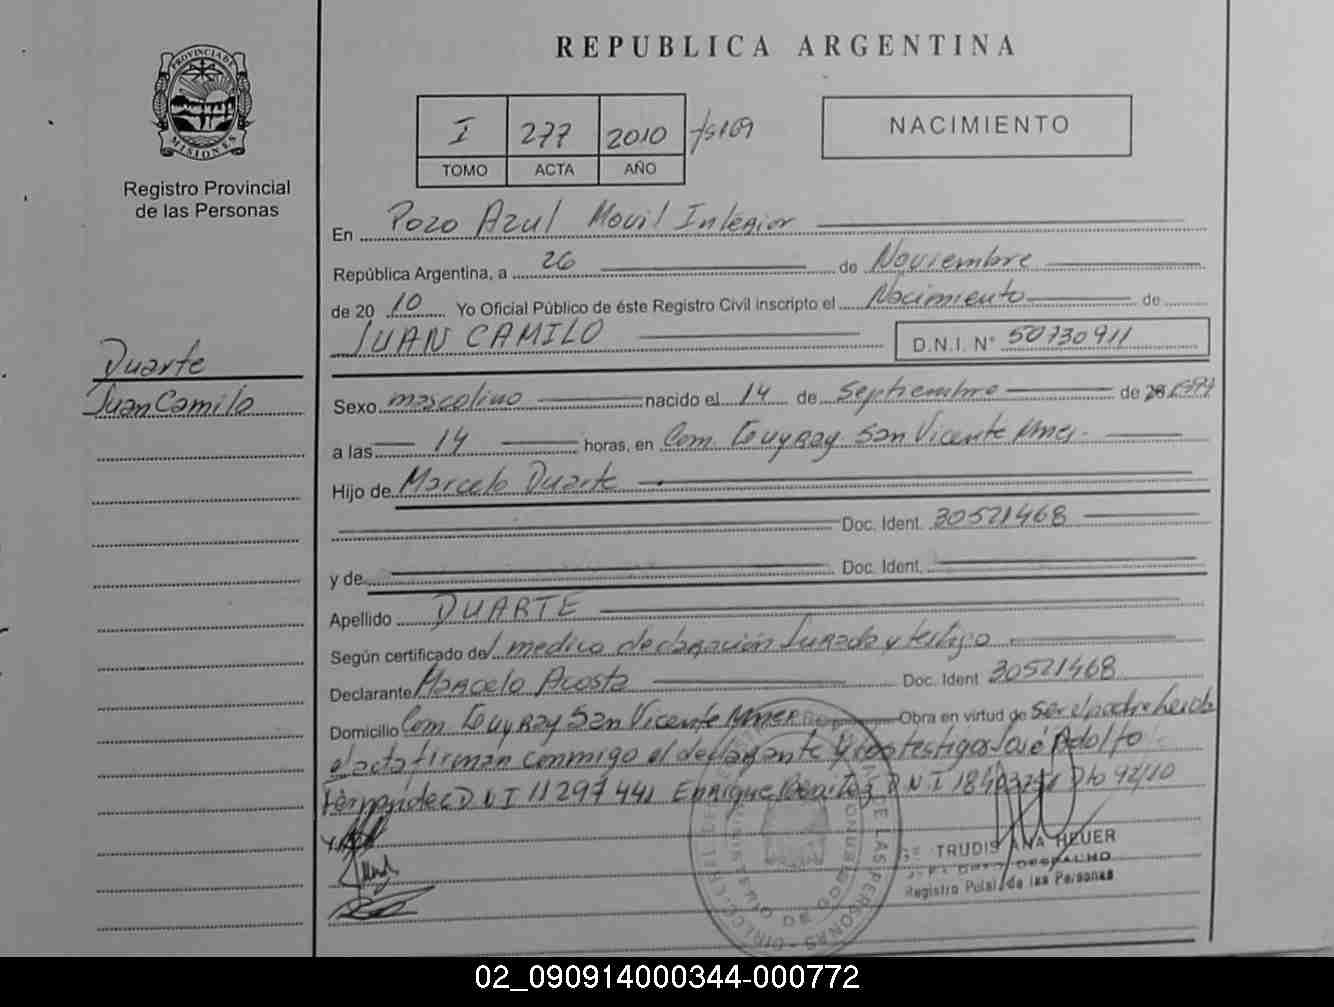 PROVINCIA DE
MISIONES
Registro Provincial
de las Personas
REPUBLICA ARGENTINA
I 277 2010 fs 109
TOMO ACTA AÑO
NACIMIENTO
En Pozo Azul Movil Interior
República Argentina, a 26 de Noviembre
de 2010 Yo Oficial Público de éste Registro Civil inscripto el Nacimiento de
JUAN CAMILO D.N.I. N° 50730911
Duarte
Juan Camilo
Sexo mascolino nacido el 14 de Septiembre de
a las 14 horas, en Com. San Vicente Mnes.
Hijo de Marcelo Duarte
Doc. Ident. 30521468
y de Doc. Ident.
Apellido DUARTE
Según certificado del medico declaración Jurada y testigo
Declarante Marcelo Acosta Doc. Ident 30521468
Domicilio Com. San Vicente Obra en virtud de ser el padre
el acta firman conmigo el declarante y los testigos José Adolfo
Fernández D N I 11297441 Enrique Benitez D N I
TRUDIS ANA HEUER
DESPACHO
de las Personas
02_090914000344-000772